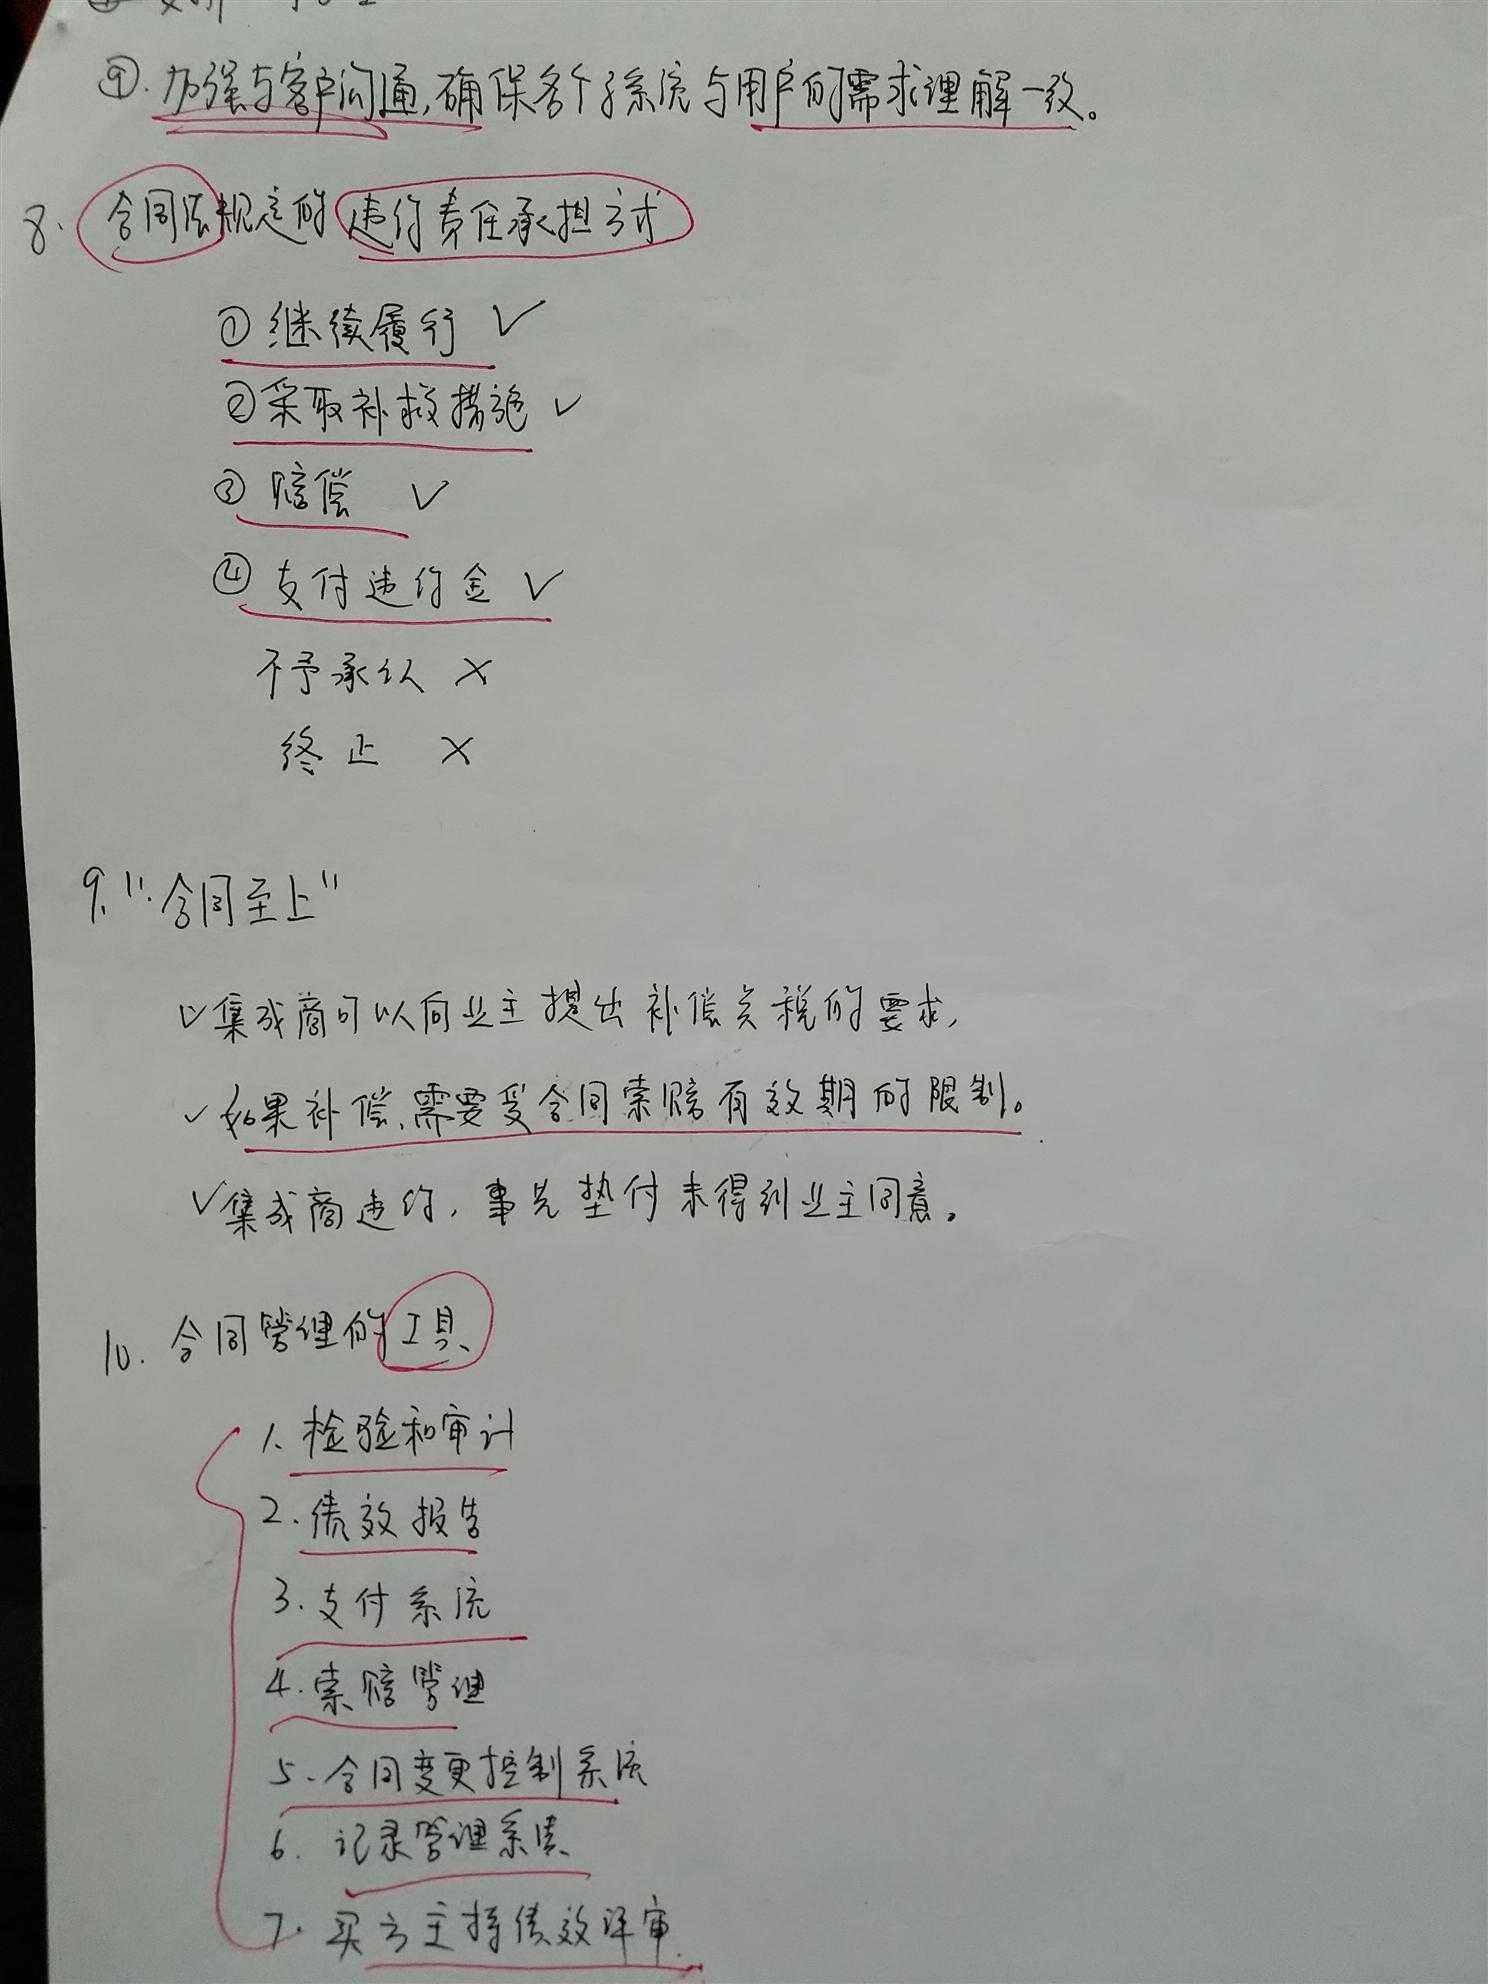 ④. 加强与客户沟通,确保各个子系统与用户的需求理解一致。
8. 合同法规定的违约责任承担方式
① 继续履行 ✓
② 采取补救措施 ✓
③ 赔偿 ✓
④ 支付违约金 ✓
不予承认 ×
终止 ×
9. "合同至上"
✓集成商可以向业主提出补偿关税的要求,
✓如果补偿,需要受合同索赔有效期的限制。
✓集成商违约,事先垫付未得到业主同意。
10. 合同管理的工具
1. 检验和审计
2. 绩效报告
3. 支付系统
4. 索赔管理
5. 合同变更控制系统
6. 记录管理系统
7. 买方主持绩效评审